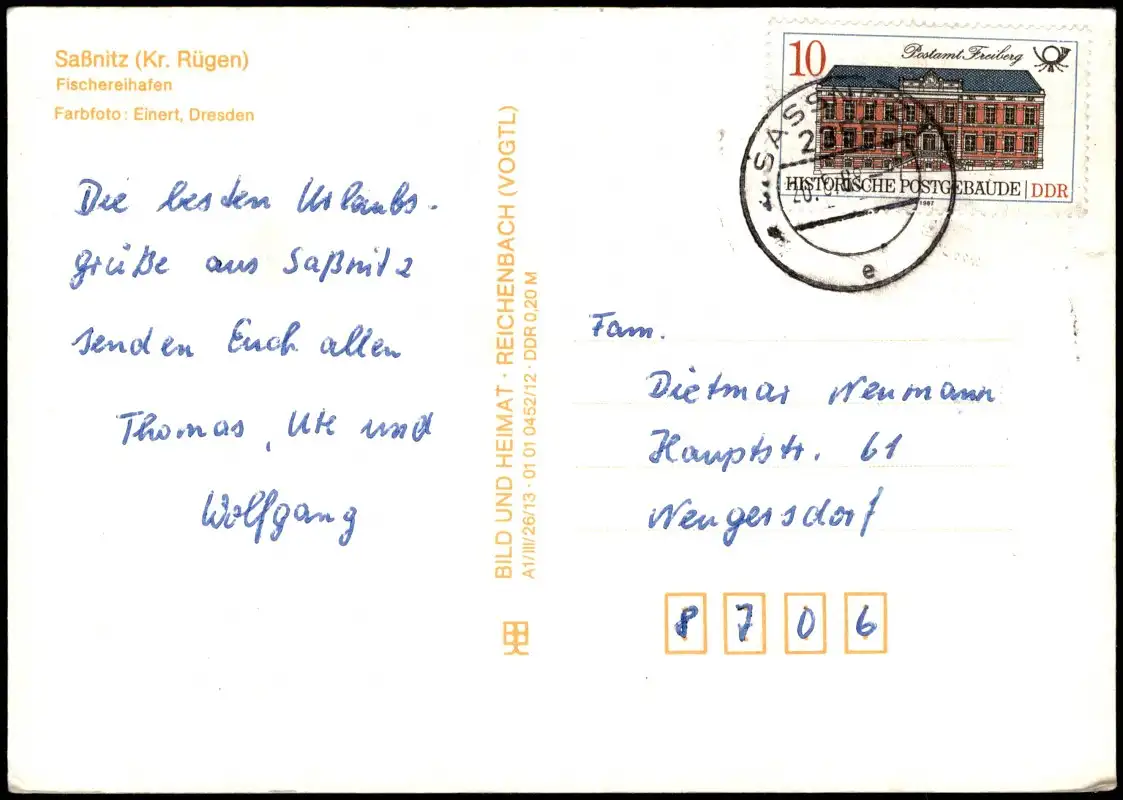 Saßnitz (Kr. Rügen)
Fischereihafen
Farbfoto: Einert, Dresden
Die besten Urlaubs-
grüße aus Saßnitz
senden Euch allen
Thomas, Ute und
Wolfgang
BILD UND HEIMAT · REICHENBACH (VOGTL)
A1/III/26/13 · 01 01 0452/12 · DDR 0,20 M
10
Postamt Freiberg
HISTORISCHE POSTGEBÄUDE | DDR
1987
e
Fam.
Dietmar Neumann
Hauptstr. 61
Neugersdorf
8 7 0 6